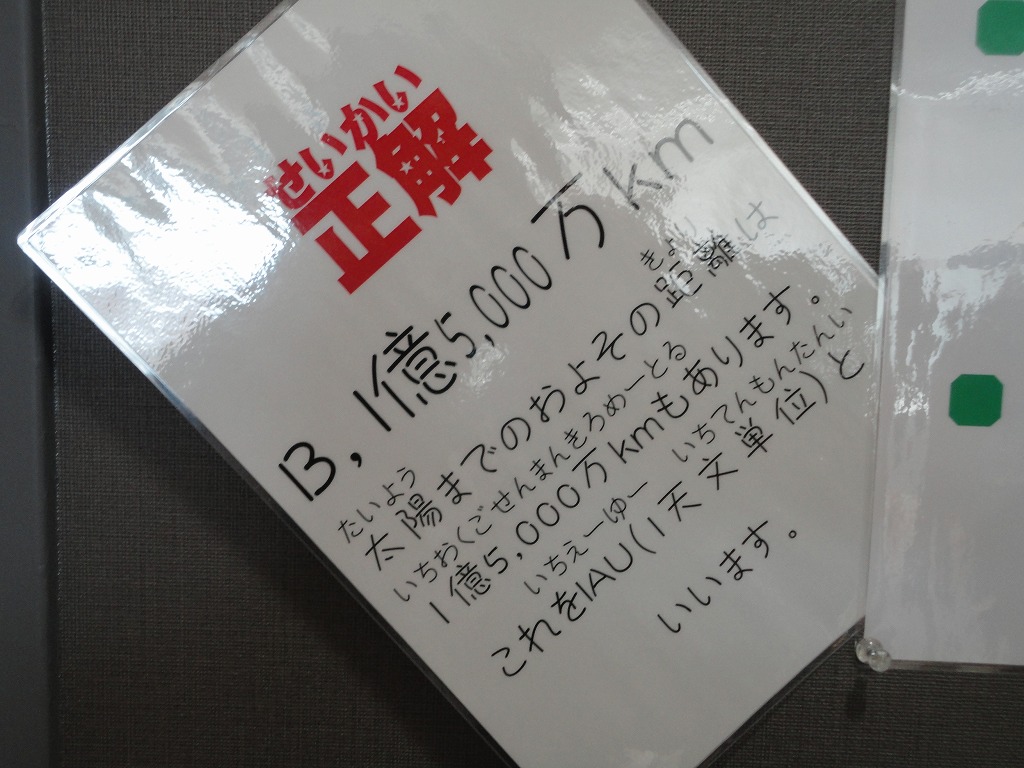 せいかい
正解
B, 1億5,000万km
たいよう きょり
太陽までのおよその距離は
いちおくごせんまんきろめーとる
1億5,000万kmもあります。
いちえーゆー いちてんもんたんい
これを1AU(1天文単位)と
いいます。